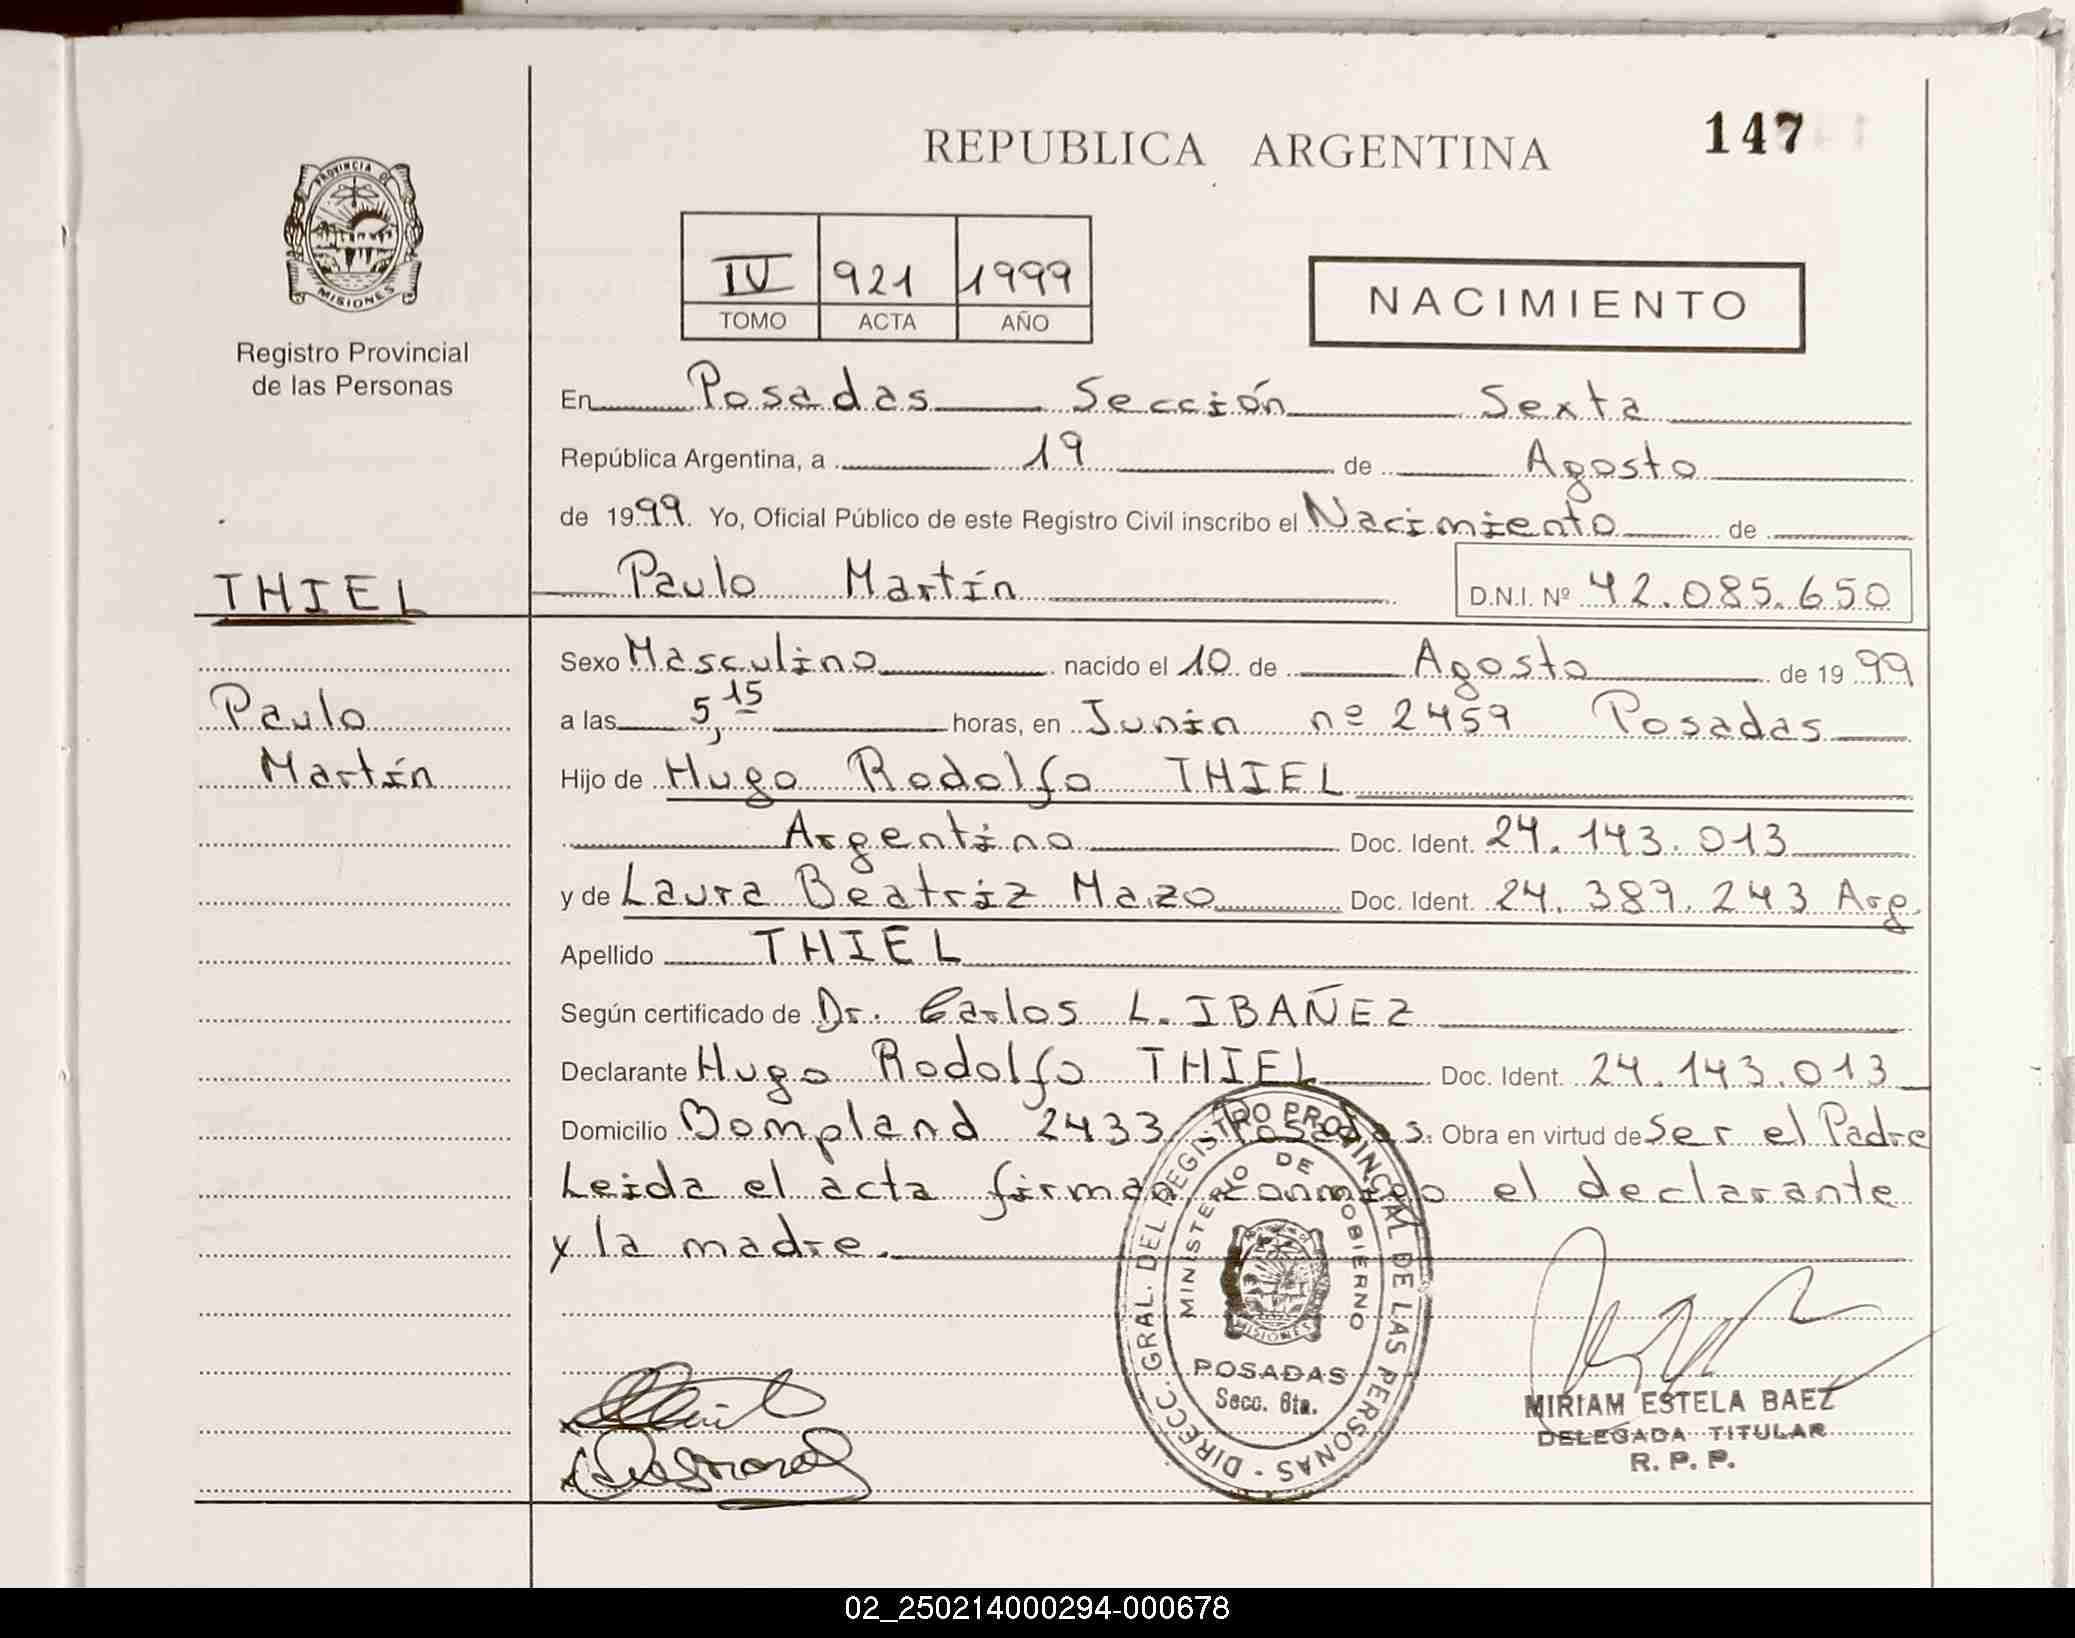 REPUBLICA ARGENTINA
147
PROVINCIA DE
MISIONES
Registro Provincial
de las Personas
IV 921 1999
TOMO ACTA AÑO
NACIMIENTO
En Posadas Sección Sexta
República Argentina, a 19 de Agosto
de 1999. Yo, Oficial Público de este Registro Civil inscribo el Nacimiento de
THIEL
Paulo Martín D.N.I. Nº 42.085.650
Sexo Masculino nacido el 10 de Agosto de 1999
Paulo
a las 5,15 horas, en Junin nº 2459 Posadas
Martín
Hijo de Hugo Rodolfo THIEL
Argentino Doc. Ident. 24.143.013
y de Laura Beatriz Mazo Doc. Ident. 24.389.243 Arg.
Apellido THIEL
Según certificado de Dr. Carlos L. IBAÑEZ
Declarante Hugo Rodolfo THIEL Doc. Ident. 24.143.013
Domicilio Bompland 2433 Posadas. Obra en virtud de Ser el Padre
Leida el acta firman conmigo el declarante
y la madre.
DIRECC. GRAL. DEL REGISTRO PROVINCIAL DE LAS PERSONAS
MINISTERIO DE GOBIERNO
MISIONES
POSADAS
Secc. 6ta.
MIRIAM ESTELA BAEZ
DELEGADA TITULAR
R. P. P.
02_250214000294-000678